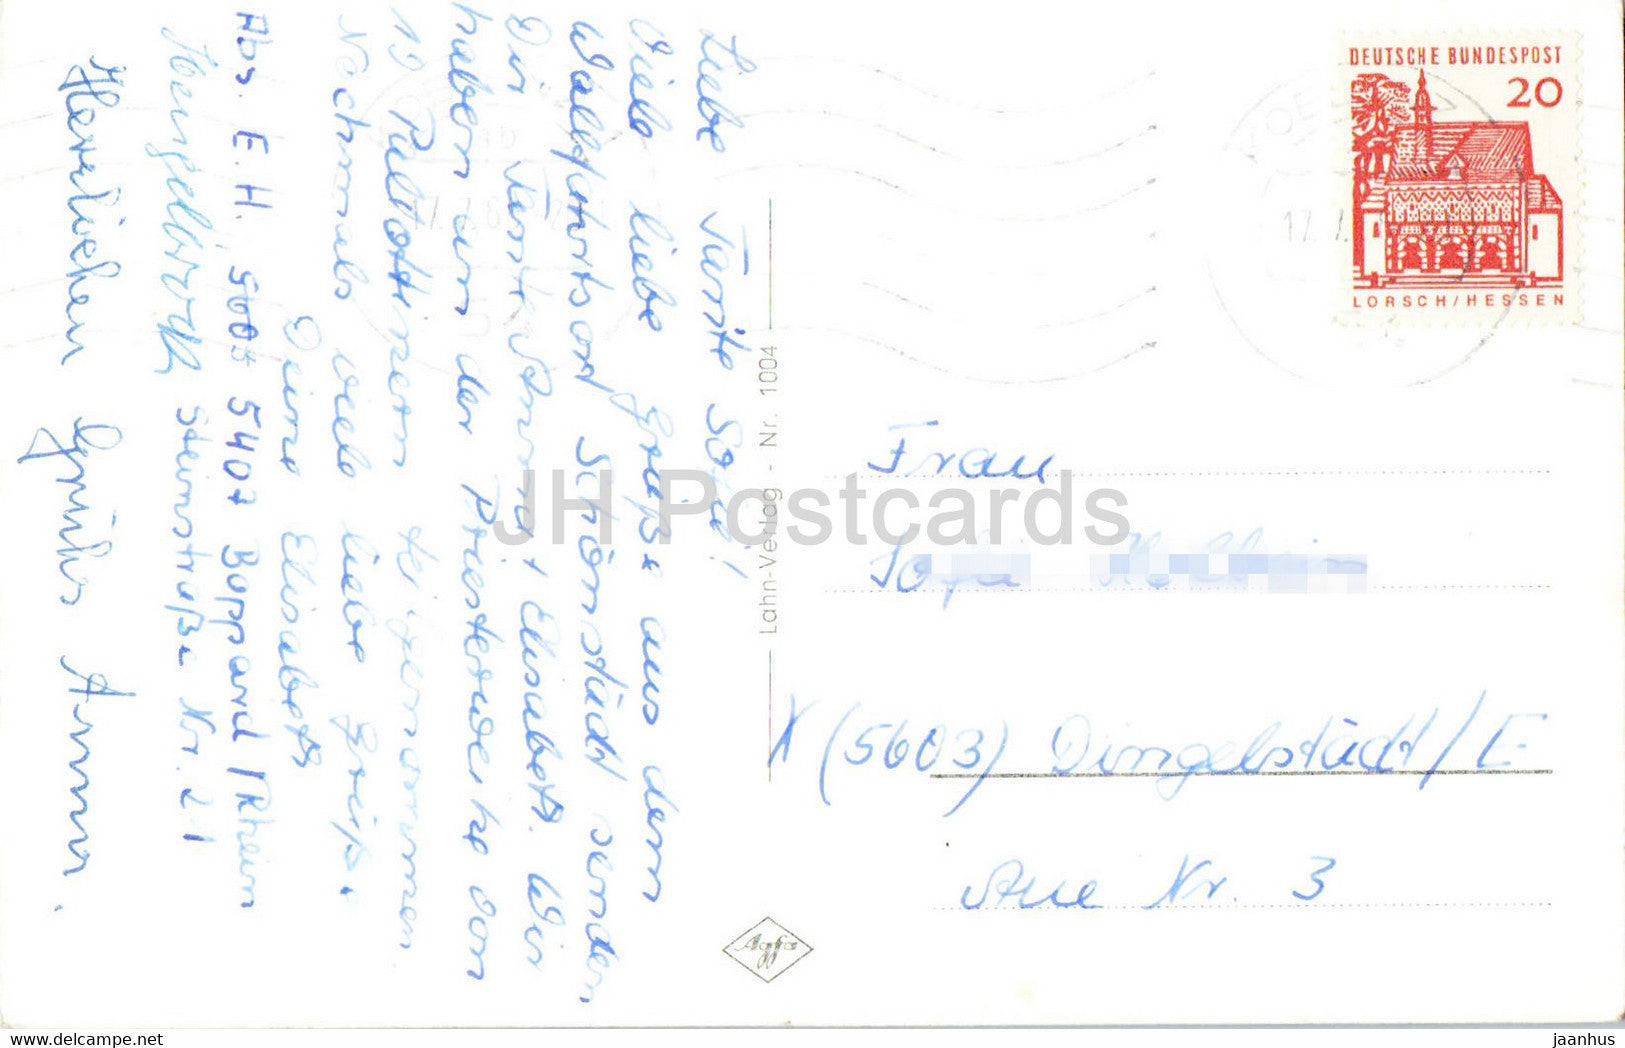 Liebe Tante Sofie!
Viele liebe Grüße aus dem
Wallfahrtsort Schönstadt senden
Dir Tante Anna + Elisabeth. Wir
haben an der Priesterweihe von
19 Pallottinern teilgenommen
Nochmals viele liebe Grüße
Deine Elisabeth
Abs. E. H. 5407 Boppard / Rhein
Steinstraße Nr. 21
Herzlichen Grüße Anna.
Lahn-Verlag - Nr. 1004
Agfa
DEUTSCHE BUNDESPOST
20
LORSCH/HESSEN
17.7.
Frau
Sofie
X (5603) Dingelstädt / E
Aue Nr. 3
JH Postcards
jaanhus